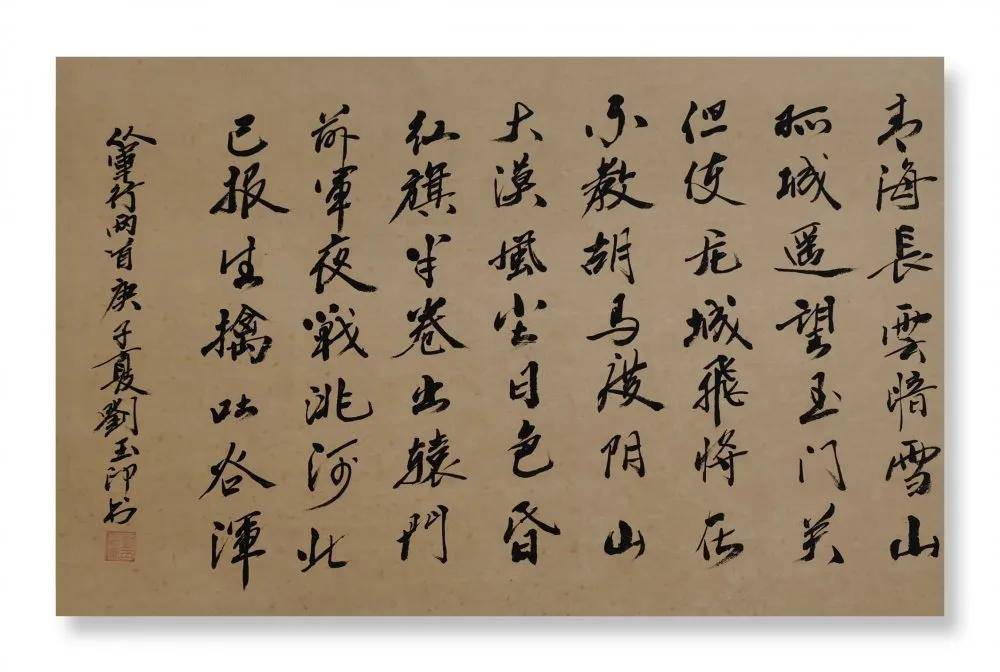 青海長雲暗雪山
孤城遥望玉门关
但使龙城飛将在
不教胡马度阴山
大漠風尘日色昏
红旗半卷出辕門
前軍夜戰洮河北
已报生擒吐谷渾
从軍行两首庚子夏劉玉印书